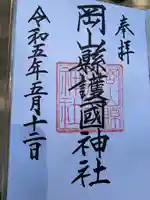 奉拝
岡山縣護國神社
令和五年五月十二日